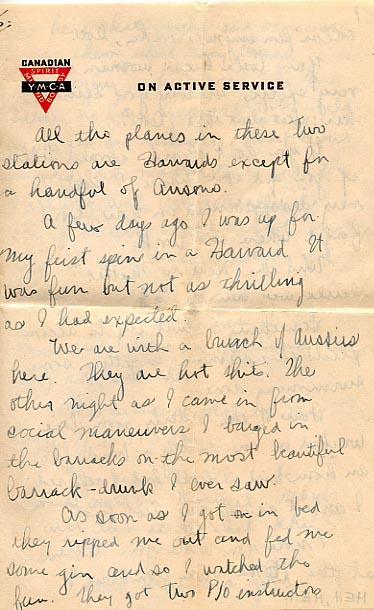 CANADIAN
SPIRIT
MIND BODY
Y·M·C·A
ON ACTIVE SERVICE
All the planes in these two
stations are Harvards except for
a handful of Ansons.
A few days ago I was up for
my first spin in a Harvard. It
was fun but not as thrilling
as I had expected.
We are with a bunch of Aussies
here. They are hot shits. The
other night as I came in from
social maneuvers I barged in
the barracks on the most beautiful
barrack-drunk I ever saw.
As soon as I got in bed
they ripped me out and fed me
some gin and so I watched the
fun. They got two P/O instructors